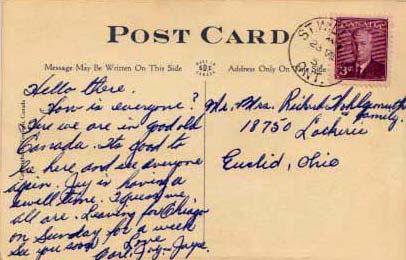 POST CARD
Message May Be Written On This Side
Address Only On
CANADA
Hello there.
How is everyone?
Here we are in good old
Canada. Its good to
be here and see everyone
again. Jay is having a
swell time. I guess we
all are. Leaving for Chicago
on Sunday for a week
See you soon Love
Mr. Mrs. Richard
& family.
18750
Euclid, Ohio